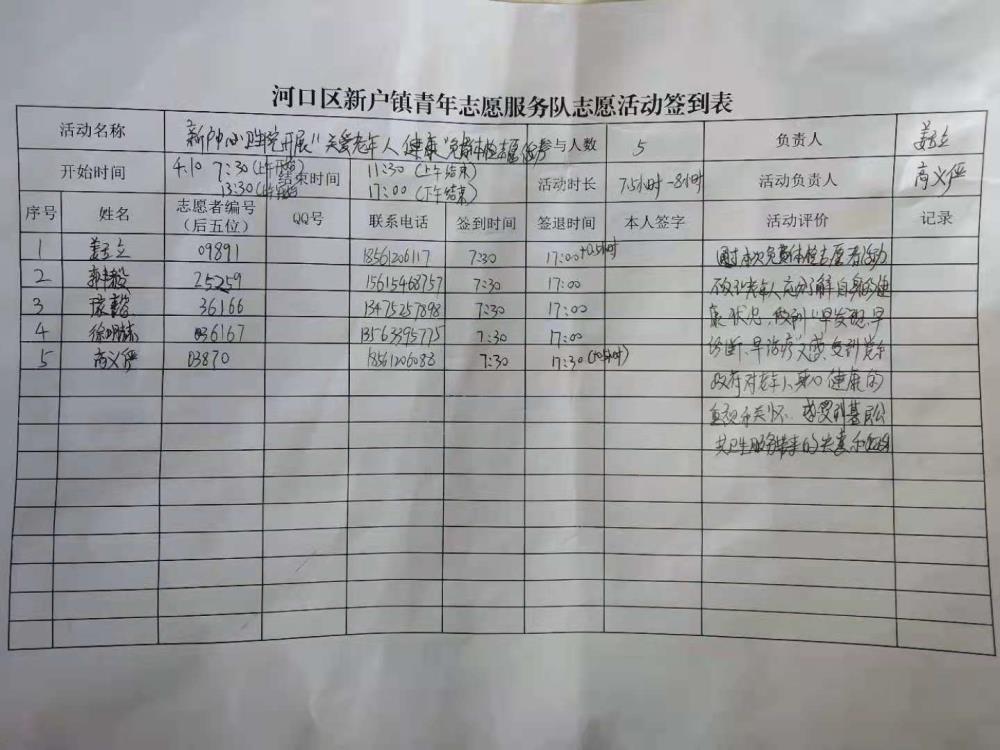 河口区新户镇青年志愿服务队志愿活动签到表
活动名称 新户中心卫生院开展"关爱老年人健康"免费体检志愿活动 参与人数 5 负责人
开始时间 4.10 7:30(上午开始) 结束时间 11:30(上午结束) 活动时长 7.5小时-8小时 活动负责人 商义严
13:30 17:00(下午结束)
序号 姓名 志愿者编号(后五位) QQ号 联系电话 签到时间 签退时间 本人签字 活动评价 记录
1 09891 18561206117 7:30 17:00+0.5小时 通过本次免费体检志愿者活动
2 25259 15615468757 7:30 17:00 老年人充分了解自身的健
3 36166 13475257898 7:30 17:00 康状况,做到"早发现、早
4 036167 13563395775 7:30 17:00 诊断、早治疗"
5 商义严 03870 18561206088 7:30 17:30
政府对老年人身心健康的
重视和关怀、感受到基层公
共卫生服务带来的